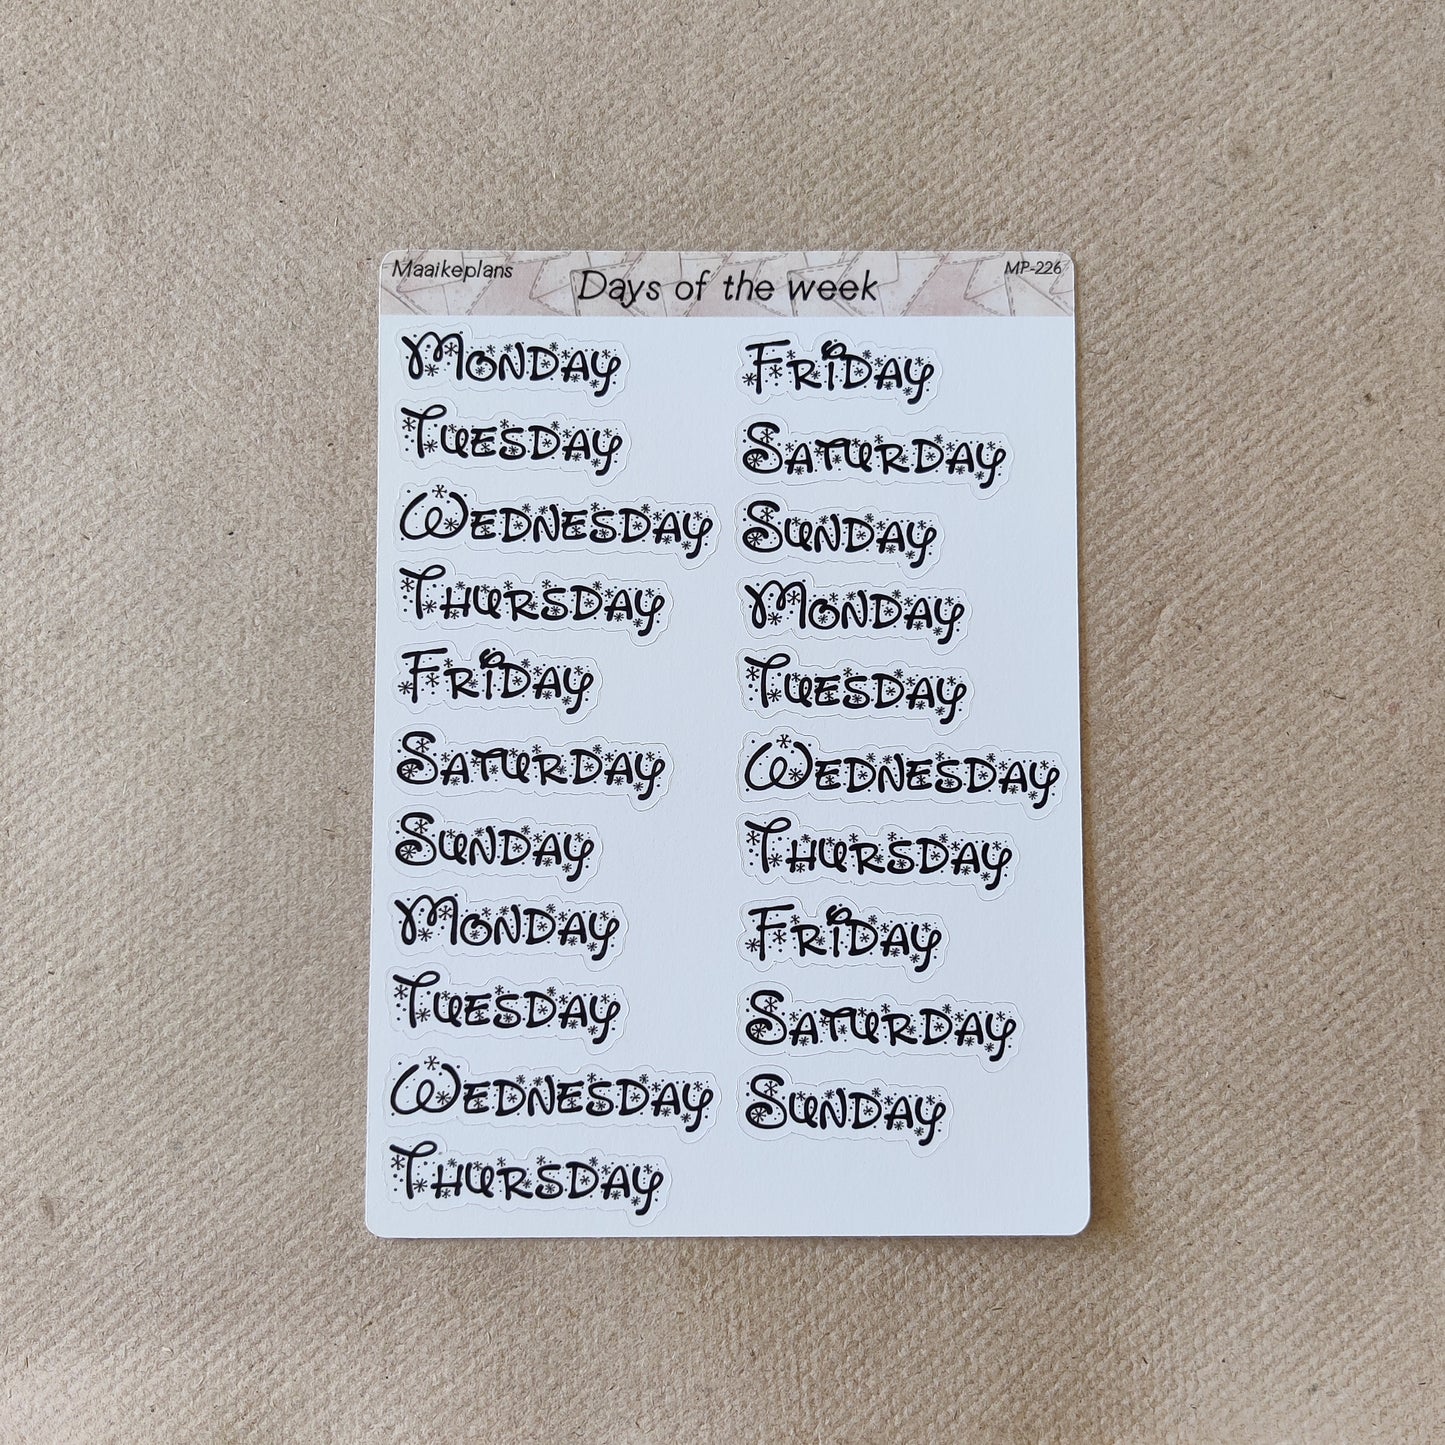 Maaikeplans
Days of the week
MP-226
Monday
Tuesday
Wednesday
Thursday
Friday
Saturday
Sunday
Monday
Tuesday
Wednesday
Thursday
Friday
Saturday
Sunday
Monday
Tuesday
Wednesday
Thursday
Friday
Saturday
Sunday